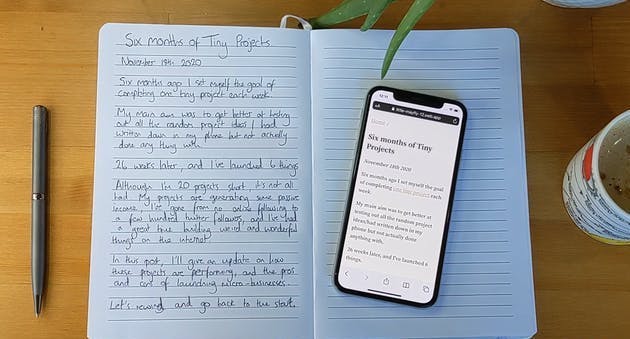 Six months of Tiny Projects
November 18th 2020
Six months ago I set myself the goal of
completing one tiny project each week.
My main aim was to get better at testing
out all the random project ideas I had
written down in my phone but not actually
done any thing with.
26 weeks later, and I've launched 6 things
Although I'm 20 projects short, it's not all
bad. My projects are generating some passive
income, I've gone from no online following to
a few hundred twitter followers, and I've had
a great time building weird and wonderful
things on the internet.
In this post, I'll give an update on how
these projects are performing, and the pros
and cons of launching micro-businesses.
Let's rewind and go back to the start.
12:11
AA
little-mayfly-12.web.app
Home /
Six months of Tiny
Projects
November 18th 2020
Six months ago I set myself the goal
of completing one tiny project each
week.
My main aim was to get better at
testing out all the random project
ideas I had written down in my
phone but not actually done
anything with.
26 weeks later, and I've launched 6
things.